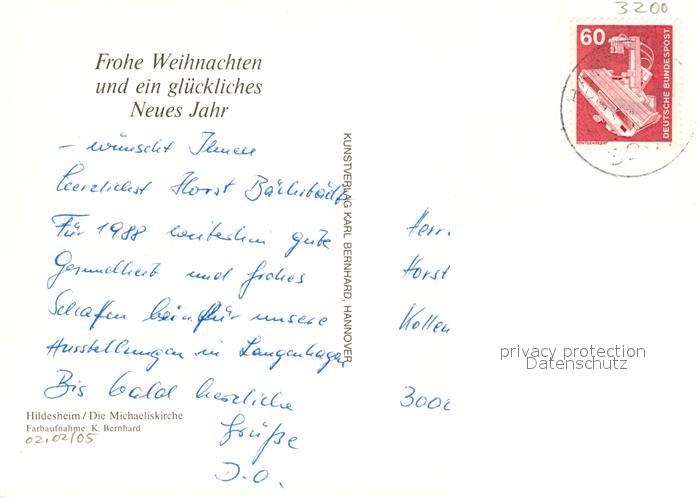 3200
60
DEUTSCHE BUNDESPOST
Frohe Weihnachten
und ein glückliches
Neues Jahr
– wünscht Ihnen
herzlichst Horst
Für 1988 weiterhin gute
Gesundheit und frohes
Schaffen für unsere
Ausstellungen in Langenhagen
Bis bald herzliche
Grüße
D.O.
KUNSTVERLAG KARL BERNHARD, HANNOVER
Herr
Horst
Kollen
300
privacy protection
Datenschutz
Hildesheim / Die Michaeliskirche
Farbaufnahme: K. Bernhard
02.02/05